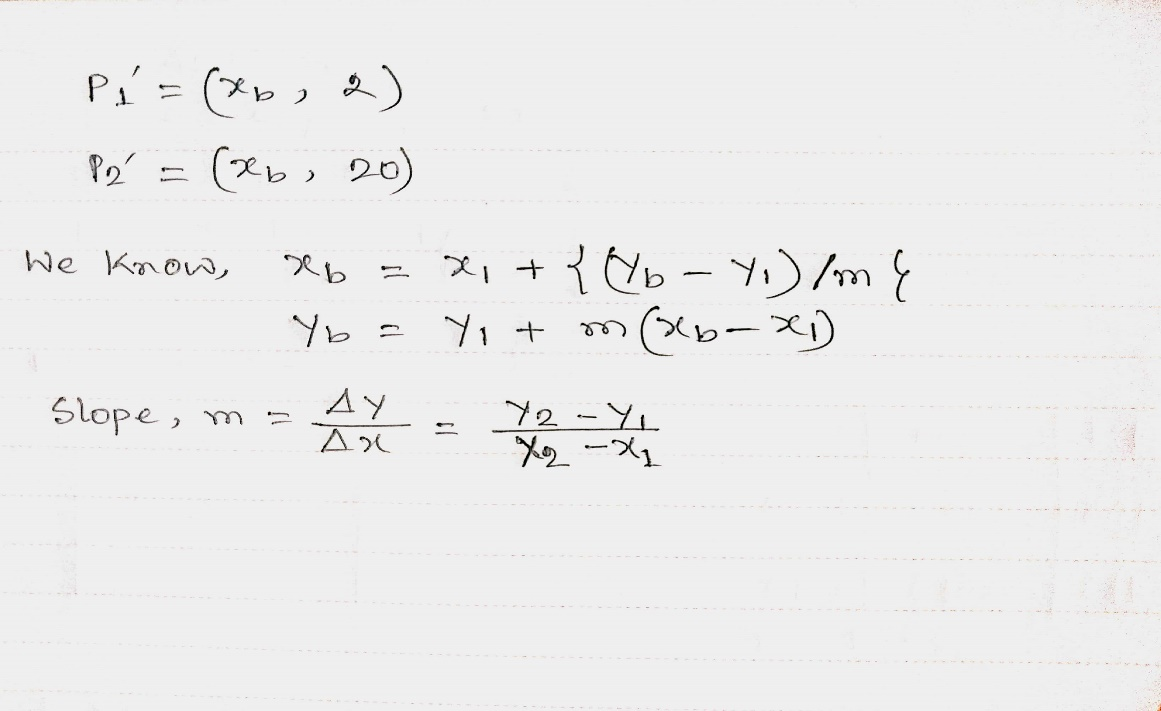 P1′ = (xb, 2)
P2′ = (xb, 20)
We Know, xb = x1 + {(Yb − Y1)/m}
Yb = Y1 + m(xb − x1)
Slope, m = ΔY/Δx = Y2 − Y1/X2 − x1